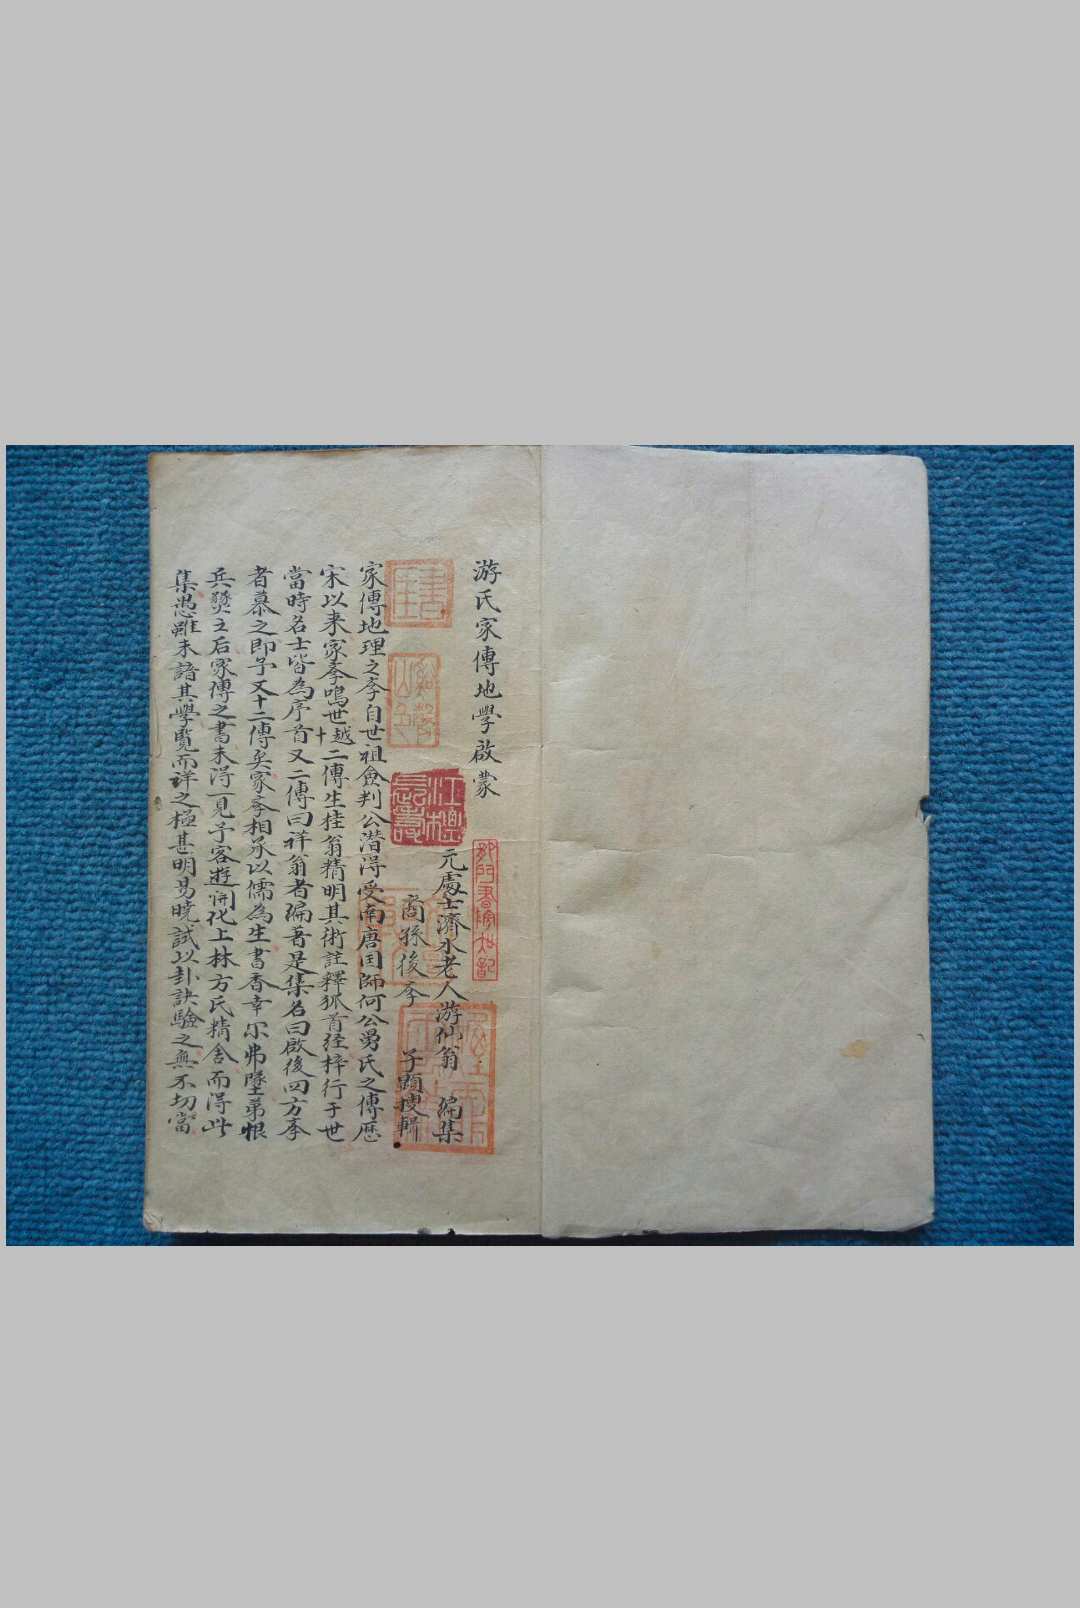 游氏家傳地學啟蒙
元處士濟水老人游仙翁 編集
裔孫後李 子顯捜輯
家傳地理之李自世祖僉判公潛得受南唐囯師何公勇氏之傳歷
宋以来家李鳴世越十二傳生桂翁精明其術註釋狐首经梓行于世
當時名士皆為序首又二傳曰祥翁者編著是集名曰啟後四方李
者慕之即予又十二傳矣家李相承以儒為生書香幸尔弗墜弟恨
兵燹之后家傳之書未淂一見予客遊開化上林方氏精舍而淂此
集愚雖未諳其學覧而详之極甚明易曉試以卦訣驗之無不切當